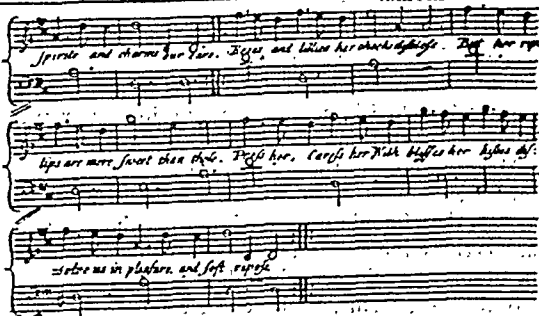 spirits and charms our Ears. Roses and lillies her cheeks disclose. But her ripe
lips are more sweet than those. Press her, Caress her With blisses her kisses dis:
=solve us in pleasure and soft repose